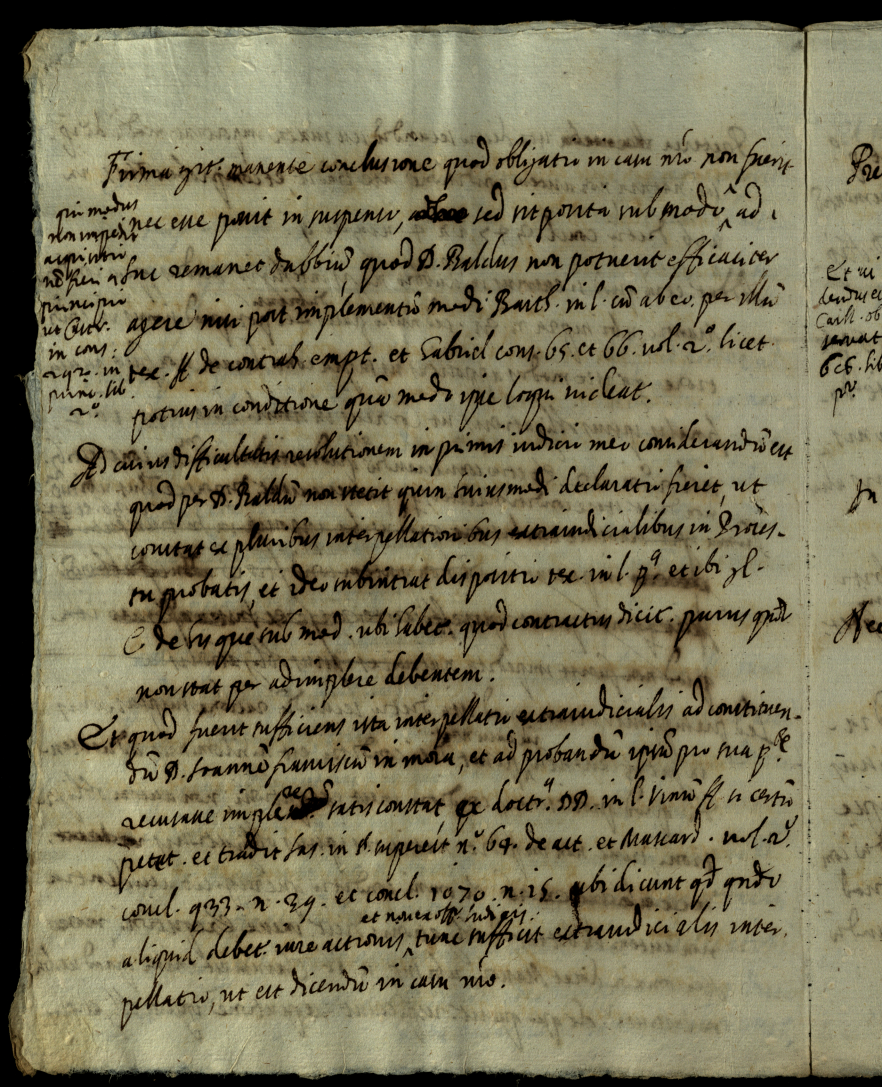 Firma igit. manente conclusione quod obligatio in casu nrõ non fuerit
nec esse possit in suspenso, sed sit posita sub modo, ad
huc remanet dubbiũ quod D. Baldus non potuerit efficaciter
agere nisi post implementũ modi Barth. in l. cũ ab eo. per illũ
tex. ff de contrah. empt. et Gabriel cons. 65. et 66. vol. 2.º licet
potius in conditione quã modo ipse loqui videat.
qui modus
non impedit
in cons.
292. in
primo lib.
2.º
Ad cuius difficultatis resolutionem in primis iudicio meo considerandũ est
quod per D. Baldũ non stetit quin huiusmodi declaratio fieret, ut
constat ex pluribus interpellationibus extraiudicialibus in Proces-
su probatis, et ideo subintrat dispositio tex. in l. pª. et ibi gl.
C de his que sub mod. ubi habet. quod contractus dicit. purus qñ
non stat per adimplere debentem.
Et quod fuerit sufficiens ista interpellatio extraiudicialis ad constituen-
dũ D. Joannẽ franciscũ in mora, et ad probandũ ipsũ pro sua p.te
recusasse implere satis constat ex doctr. DD. in l. vinũ ff si certũ
petat. et tradit Jas. in nº. 64. de act. et Mascard. vol. 2.º
concl. 933. n. 39. et concl. 1070. n. 15. ubi dicunt qd qndo
aliquid debet. iure actionis, et non ex off. Iudicis. tunc sufficit extraiudicialis inter
pellatio, ut est dicendũ in casu nrõ.
Et ui
ob
666. lib
pº.
In
Nec